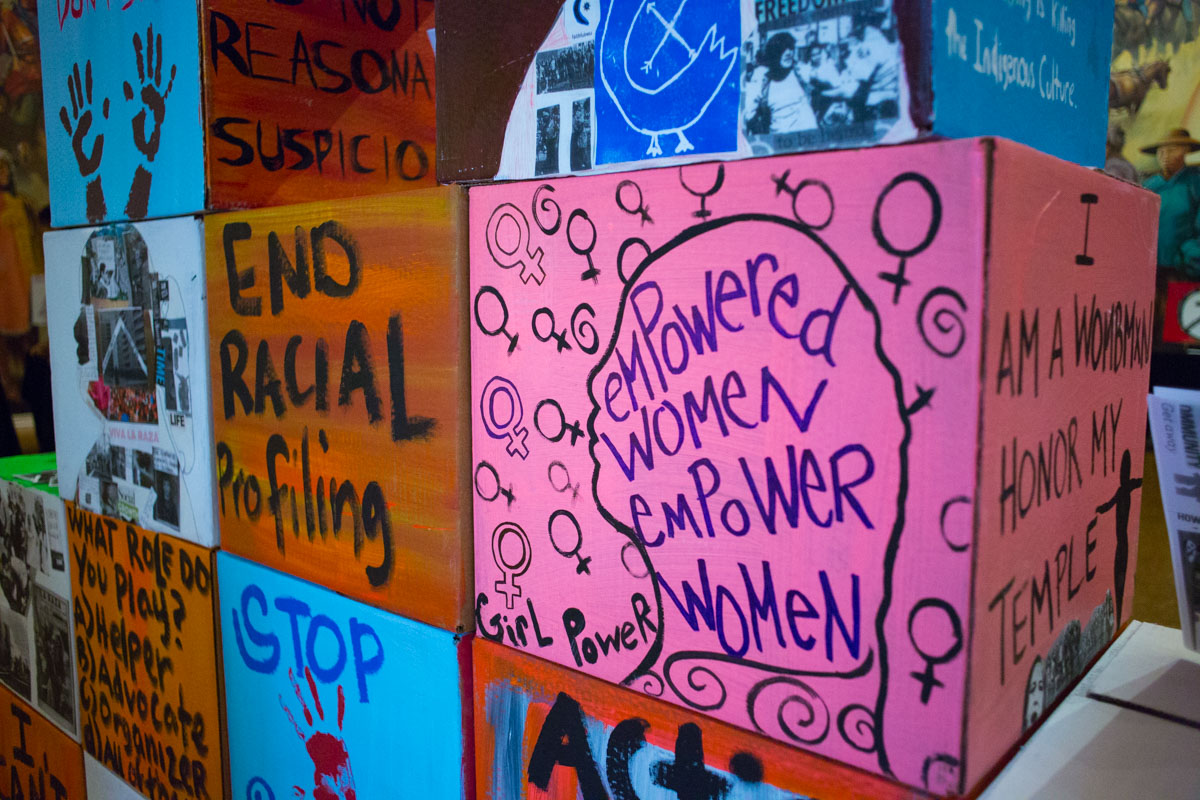 DON'T
NOT
REASONA
SUSPICIO
FREEDOM
is Killing
the Indigenous Culture.
END
RACIAL
Profiling
TIME
LIFE
VIVA LA RAZA
eMPOWered
WOMEN
eMPOWER
WOMEN
GiRL POWeR
I
AM A WOMBMXN
HONOR MY
TEMPLE
WHAT ROLE DO
You PLAY?
A) HeLpeR
B) Advocate
C) ORGANIZER
STOP
ACT
I
CAN'T